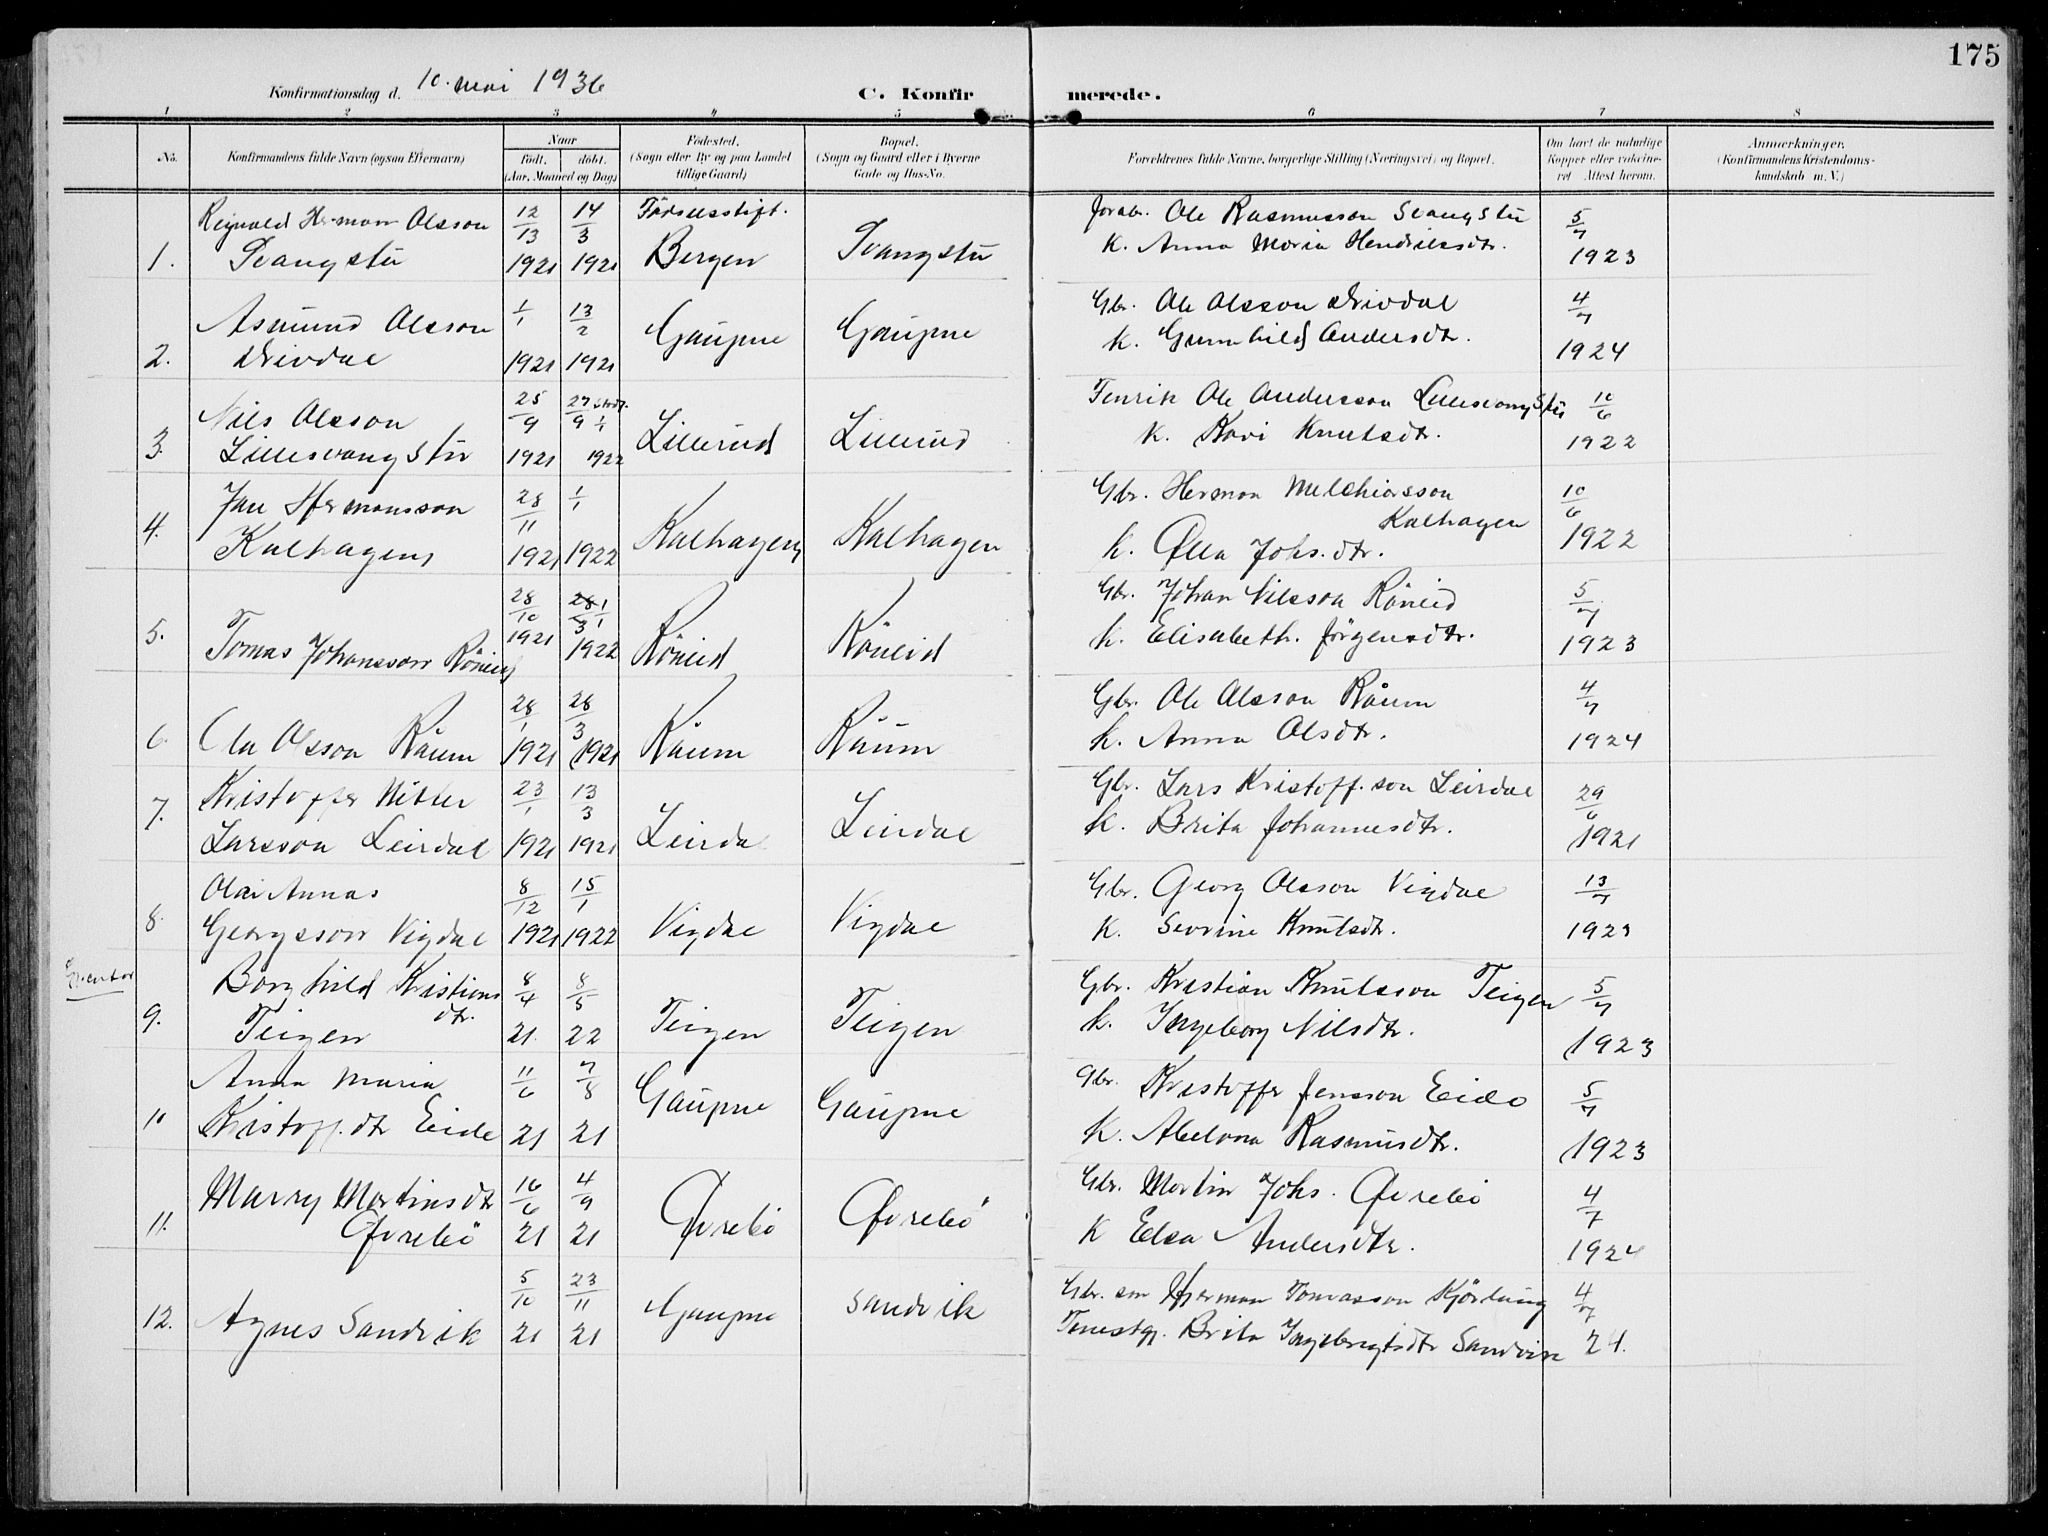 175
Konfirmationsdag d. 10. mai 1936
C. Konfirmerede.
1 2 3 4 5 6 7 8
No.
Konfirmandens fulde Navn (ogsaa Efternavn)
Naar
født. døbt.
(Aar, Maaned og Dag)
Fødested.
(Sogn eller By og paa Landet
tillige Gaard)
Bopæl.
(Sogn og Gaard eller i Byerne
Gade og Hus-No.
Forældrenes fulde Navne, borgerlige Stilling (Næringsvei) og Bopæl.
Om havt de naturlige
Kopper eller vaccine-
ret Attest herom.
Anmærkninger.
(Konfirmandens Kristendoms-
kundskab m. V.)
Reignald Herman Olsson 12/13 14/3 Födselsstift. Ole Rasmusson Svangstu 5/7
1. Svangstu 1921 1921 Bergen Svangstu K. Anna Maria Hendriksdtr. 1923
Asmund Olsson 1/1 13/2 Gaupne Gaupne Gbr. Ole Olsson Drivdal 4/7
2. Drivdal 1921 1921 K. Gunnhild Andersdtr. 1924
Nils Olsson 25/9 27/9 1/1 Fenrik Ole Andersson Lillesvangstu 10/6
3. Lillesvangstu 1921 1922 Lillerud Lillerud K. Kari Knutsdtr. 1922
Jan Hermansson 28/11 1/1 Gbr. Herman Melchiorsson 10/6
4. Kalhagen 1921 1922 Kalhagen Kalhagen Kalhagen
K. Olla Johs.dtr. 1922
28/10 1/1 Gbr. Johan Nilsson Röneid 5/7
5. Tomas Johansson Röneid 1921 1922 Röneid Röneid K. Elisabeth Jörgensdtr. 1923
28/1 28/3 Gbr. Ole Olsson Råum 4/7
6. Ola Olsson Råum 1921 1921 Råum Råum K. Anna Olsdtr. 1924
Kristoffer Nitter 23/1 13/3 Gbr. Lars Kristoff.son Leirdal 29/6
7. Larsson Leirdal 1921 1921 Leirda Leirdal K. Brita Johannesdtr. 1921
Olai Annas 8/12 15/1 Gbr. Georg Olsson Vigdal 13/7
8. Georgsson Vigdal 1921 1922 Vigdal Vigdal K. Severine Knutsdtr. 1923
Gjentor
Borghild Kristians 8/4 8/5 Gbr. Kristian Knutsson Teigen 5/7
dtr.
9. Teigen 21. 22 Teigen Teigen K. Ingeborg Nilsdtr. 1923
Anna Maria 11/6 7/8 Gaupne Gaupne Gbr. Kristoffer Jensson Eide 5/7
10 Kristoff.dtr Eide 21 21 K. Abelona Rasmusdtr. 1923
Marry Martinsdtr 16/6 4/9 Gbr. Martin Johs. Øvrebö 4/7
11. Øvrebö 21 21 Øvrebö Øvrebö K Elsa Andersdtr. 1924
5/10 23/11 Gbr. son Herman Tomasson Kjörlaug 4/7
12. Agnes Sandvik 21 21 Gaupne Sandvik Tenestgj. Brita Ingebrigtsdtr Sandvik 24.